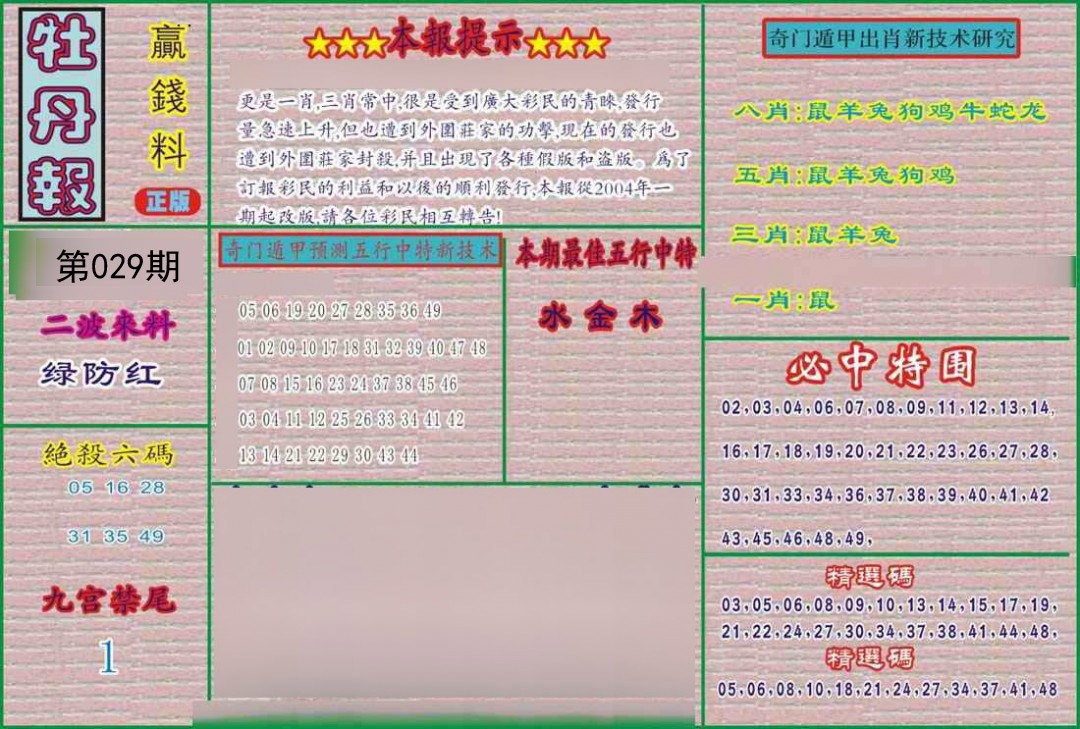 牡丹報
贏錢料
正版
★★★本報提示★★★
更是一肖,三肖常中,很是受到廣大彩民的青睞,發行
量急速上升,但也遭到外圍莊家的功擊,現在的發行也
遭到外圍莊家封殺,并且出現了各種假版和盗版。爲了
訂報彩民的利益和以後的順利發行,本報從2004年一
期起改版,請各位彩民相互轉告!
第029期
二波來料
绿防红
絕殺六碼
05 16 28
31 35 49
九宫禁尾
1
奇门遁甲预测五行中特新技术
05 06 19 20 27 28 35 36 49
01 02 09 10 17 18 31 32 39 40 47 48
07 08 15 16 23 24 37 38 45 46
03 04 11 12 25 26 33 34 41 42
13 14 21 22 29 30 43 44
本期最佳五行中特
水 金 木
奇门遁甲出肖新技术研究
八肖:鼠羊兔狗鸡牛蛇龙
五肖:鼠羊兔狗鸡
三肖:鼠羊兔
一肖:鼠
必中特围
02,03,04,06,07,08,09,11,12,13,14,
16,17,18,19,20,21,22,23,26,27,28,
30,31,33,34,36,37,38,39,40,41,42
43,45,46,48,49,
精選碼
03,05,06,08,09,10,13,14,15,17,19,
21,22,24,27,30,34,37,38,41,44,48,
精選碼
05,06,08,10,18,21,24,27,34,37,41,48